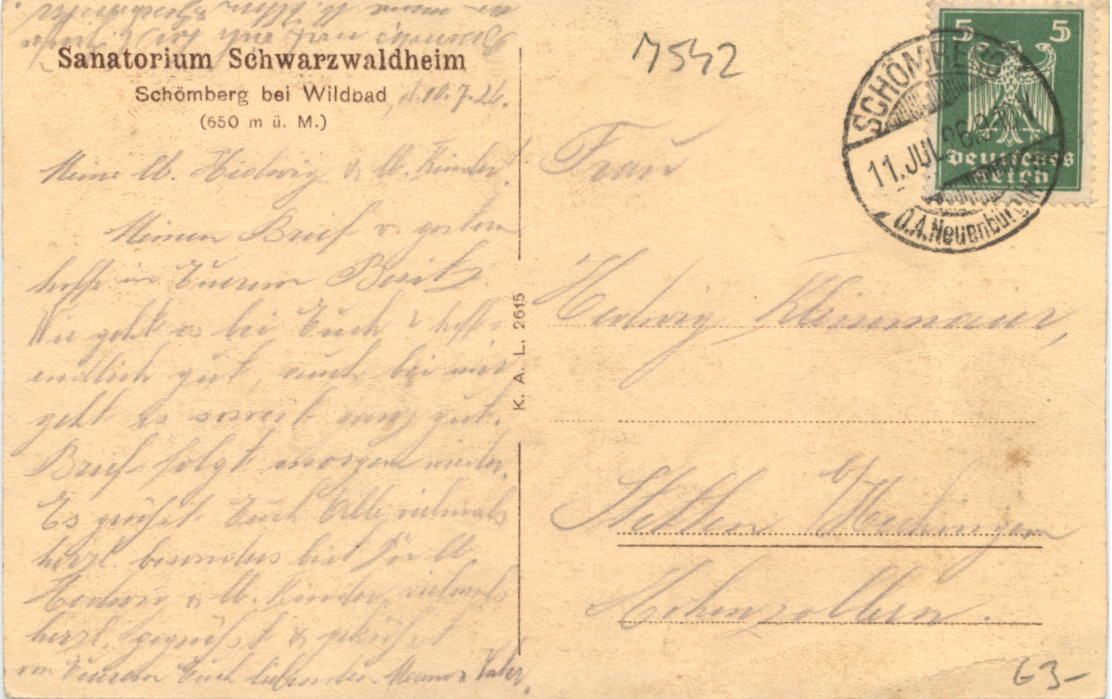 Sanatorium Schwarzwaldheim
Schömberg bei Wildbad
(650 m ü. M.)
d. 10.7.26.
Meine lb. Hedwig & lb. Kinder!
Meinen Brief v. gestern
hoffe in Eurem Besitz.
Wie geht es bei Euch? hoff-
endlich gut, auch bei mir
geht es soweit ganz gut.
Brief folgt morgen wieder.
Es grüßt Euch Alle vielmals
herzl. besonders bist Du lb.
Hedwig & lb. Kinder, vielmals
herzl. gegrüßt & geküßt
von Eurem Euch liebenden Mann & Vater.
K. A. L. 2615
7542
5 5
Deutsches
Reich
SCHÖMBERG
11. JUL. 26.
O.A. Neuenbürg
Frau
Hedwig Klemmauer,
Stetten b/Hechingen
Hohenzollern.
63-